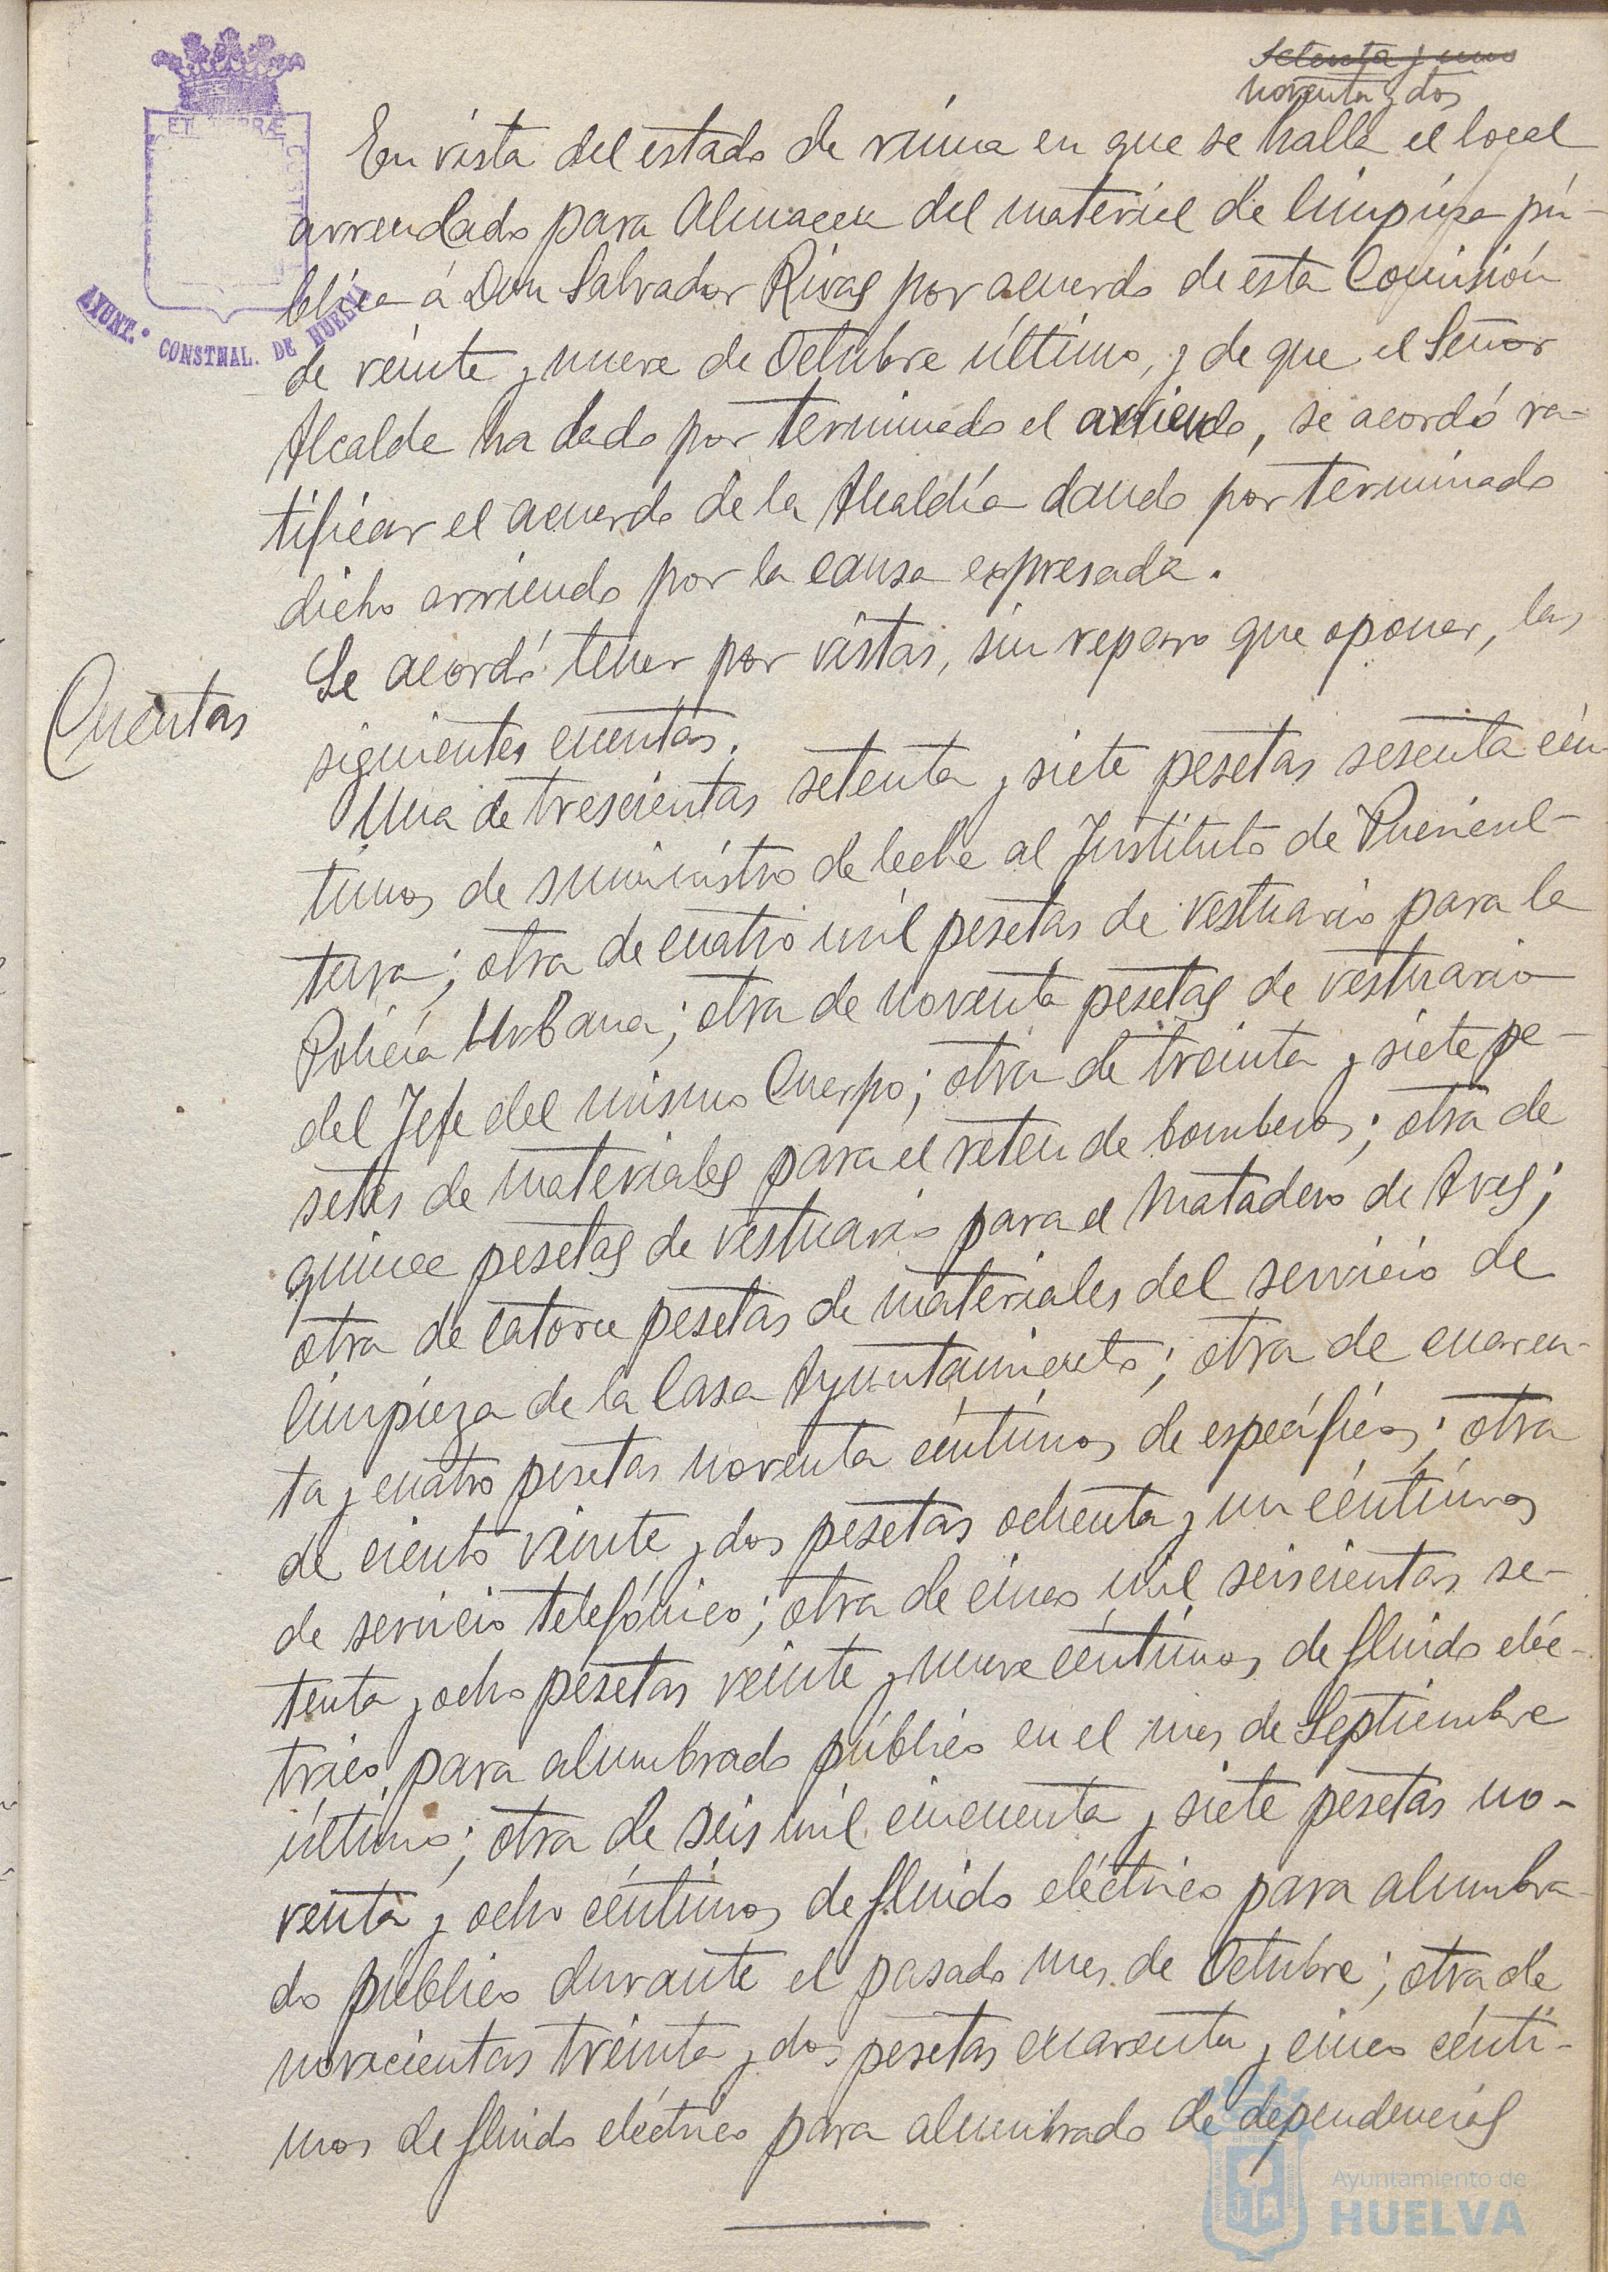 Setenta y uno
noventa y dos
ET TERRÆ CUSTO
AYUNT.º CONSTNAL. DE HUELVA
En vista del estado de ruina en que se halla el local
arrendado para Almacen del material de limpieza pú-
blica á Don Salvador Rivas por acuerdo de esta Comisión
de veinte y nueve de Octubre último, y de que el Señor
Alcalde ha dado por terminado el arriendo, se acordó ra-
tificar el acuerdo de la Alcaldía dando por terminado
dicho arriendo por la causa expresada.
Cuentas
Se acordó tener por vistas, sin reparo que oponer, las
siguientes cuentas.
Una de trescientas setenta y siete pesetas sesenta cén-
timos de suministro de leche al Instituto de Puericul-
tura; otra de cuatro mil pesetas de vestuario para la
Policía Urbana; otra de noventa pesetas de vestuario
del Jefe del mismo Cuerpo; otra de treinta y siete pe-
setas de materiales para el reten de bomberos; otra de
quince pesetas de vestuario para el Matadero de Aves;
otra de catorce pesetas de materiales del servicio de
limpieza de la Casa Ayuntamiento; otra de cuaren-
ta y cuatro pesetas noventa céntimos de específicos; otra
de ciento veinte y dos pesetas ochenta y un céntimos
de servicio telefónico; otra de cinco mil seiscientas se-
tenta y ocho pesetas veinte y nueve céntimos de fluido eléc-
trico, para alumbrado público en el mes de Septiembre
último; otra de seis mil cincuenta y siete pesetas no-
venta y ocho céntimos de fluido eléctrico para alumbra-
do público durante el pasado mes de Octubre; otra de
novecientas treinta y dos pesetas cuarenta y cinco cénti-
mos de fluido eléctrico para alumbrado de dependencias
Ayuntamiento de
HUELVA